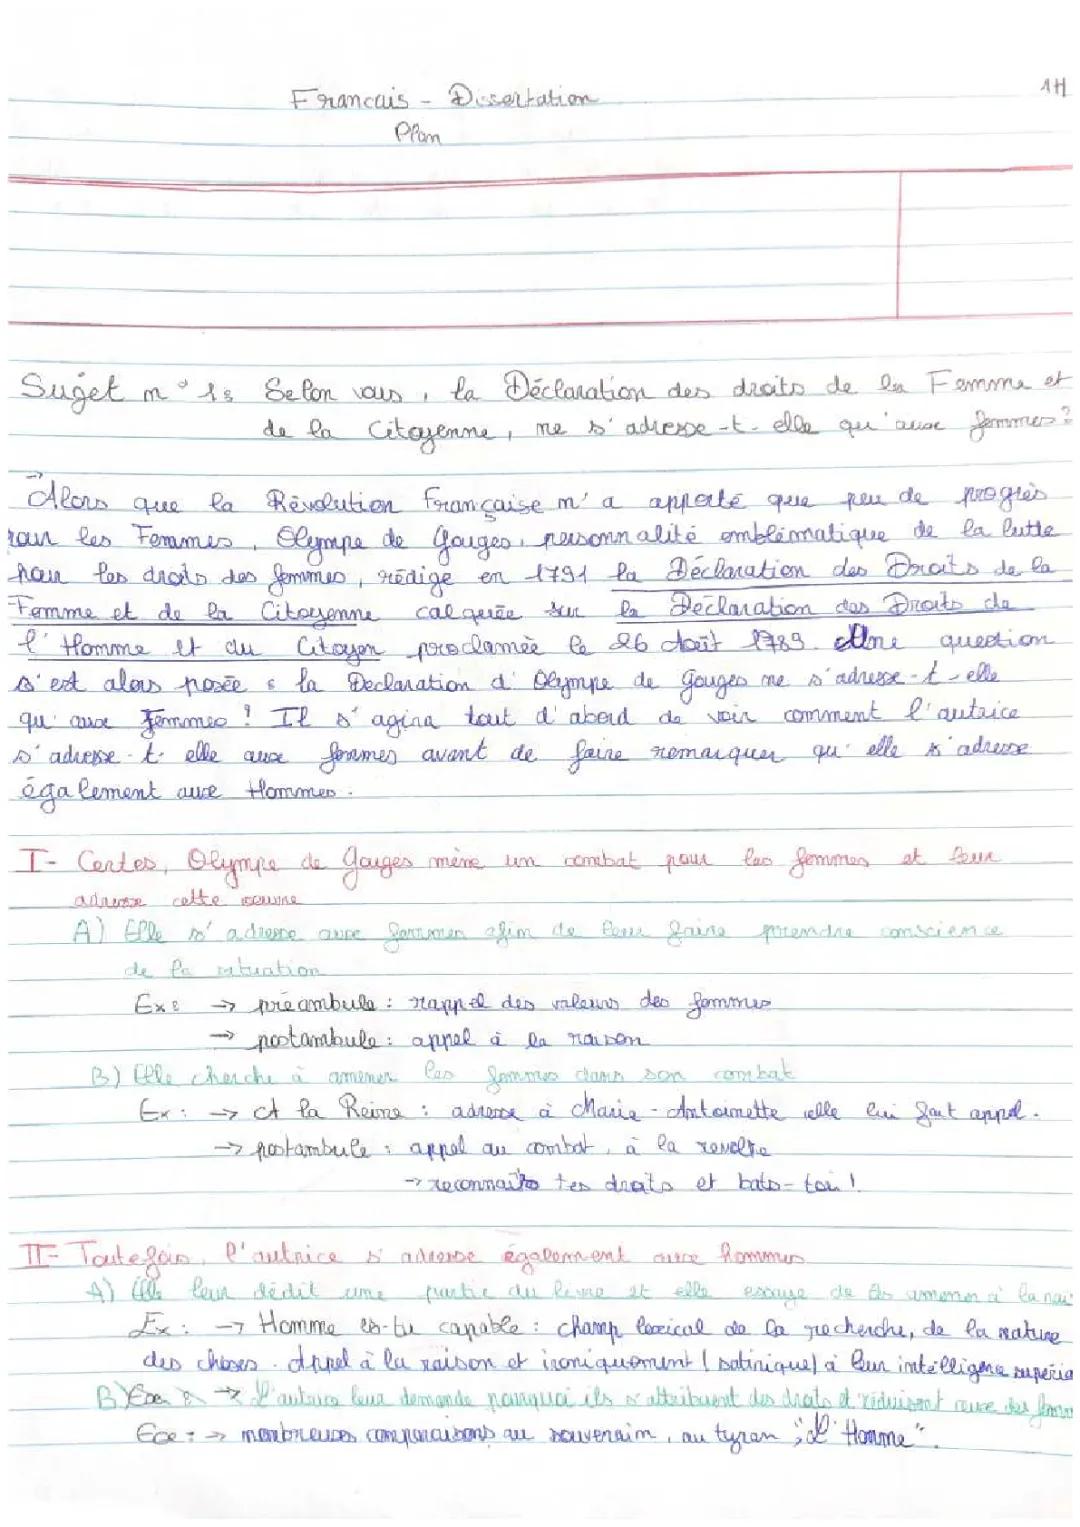 Francais - Dissertation
1H
Plan
Sujet n°1: Selon vous, la Déclaration des droits de la Femme et
de la Citoyenne, ne s'adresse-t-elle qu'aux femmes?
→ Alors que la Révolution Française n'a apporté que peu de progrès
pour les Femmes, Olympe de Gouges, personnalité emblématique de la lutte
pour les droits des femmes, rédige en 1791 la Déclaration des Droits de la
Femme et de la Citoyenne calquée sur la Déclaration des Droits de
l'Homme et du Citoyen proclamée le 26 Août 1789. Une question
s'est alors posée : la Declaration d'Olympe de Gouges ne s'adresse-t-elle
qu'aux Femmes ? Il s'agira tout d'abord de voir comment l'autrice
s'adresse-t-elle aux femmes avant de faire remarquer qu'elle s'adresse
également aux Hommes.
I- Certes, Olympe de Gouges mène un combat pour les femmes et leur
adresse cette oeuvre
A) Elle s'adresse aux femmes afin de leur faire prendre conscience
de la situation
Ex: → préambule : rappel des valeurs des femmes
→ postambule : appel à la raison
B) Elle cherche à amener les femmes dans son combat
Ex: → A la Reine : adresse à Marie-Antoinette elle lui fait appel.
→ postambule : appel au combat, à la revolte
→ reconnaits tes droits et bats-toi !
II- Toutefois, l'autrice s'adresse également aux hommes
A) Elle leur dédit une partie du livre et elle essaye de les amener à la rai
Ex: → Homme es-tu capable : champ lexical de la recherche, de la nature
des choses. Appel à la raison et ironiquement (satirique) à leur intelligence supéria
B) → L'autrice leur demande pourquoi ils s'attribuent des droits et réduisent ceux des femm
Exe: → nombreuses comparaisons au souverain, au tyran ; "L'Homme".